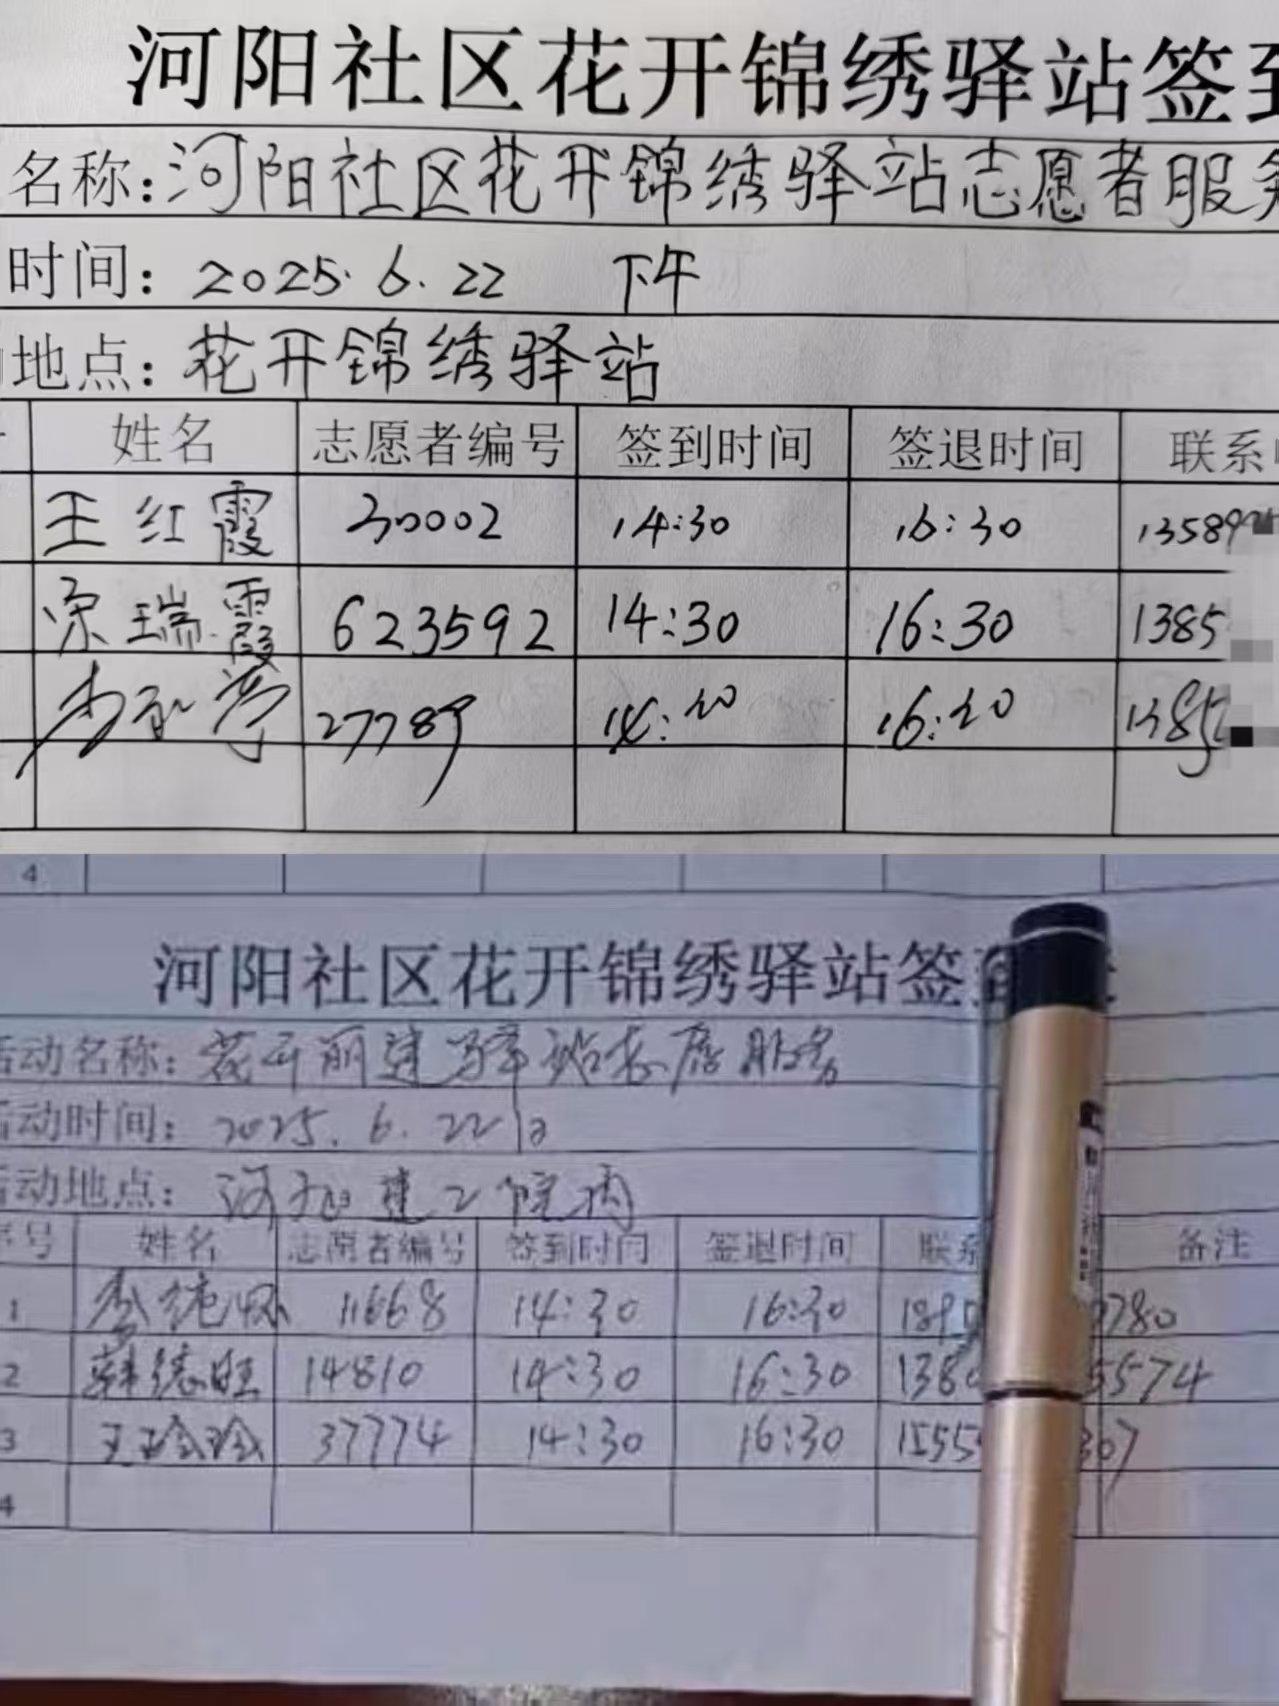 河阳社区花开锦绣驿站签到
名称:河阳社区花开锦绣驿站志愿者服务
时间: 2025.6.22 下午
地点: 花开锦绣驿站
姓名 志愿者编号 签到时间 签退时间 联系
王红霞 30002 14:30 16:30 13589
宗瑞霞 623592 14:30 16:30 1385
27789 14:30 16:30 1385
4
河阳社区花开锦绣驿站签到
活动名称: 花开丽建驿站志愿服务
活动时间: 2025.6.22日
活动地点: 河阳建工院内
序号 姓名 志愿者编号 签到时间 签退时间 联系 备注
1 11668 14:30 16:30 1895 7780
2 韩德旺 14810 14:30 16:30 1380 5574
3 王玲玲 37774 14:30 16:30 1555 367
4